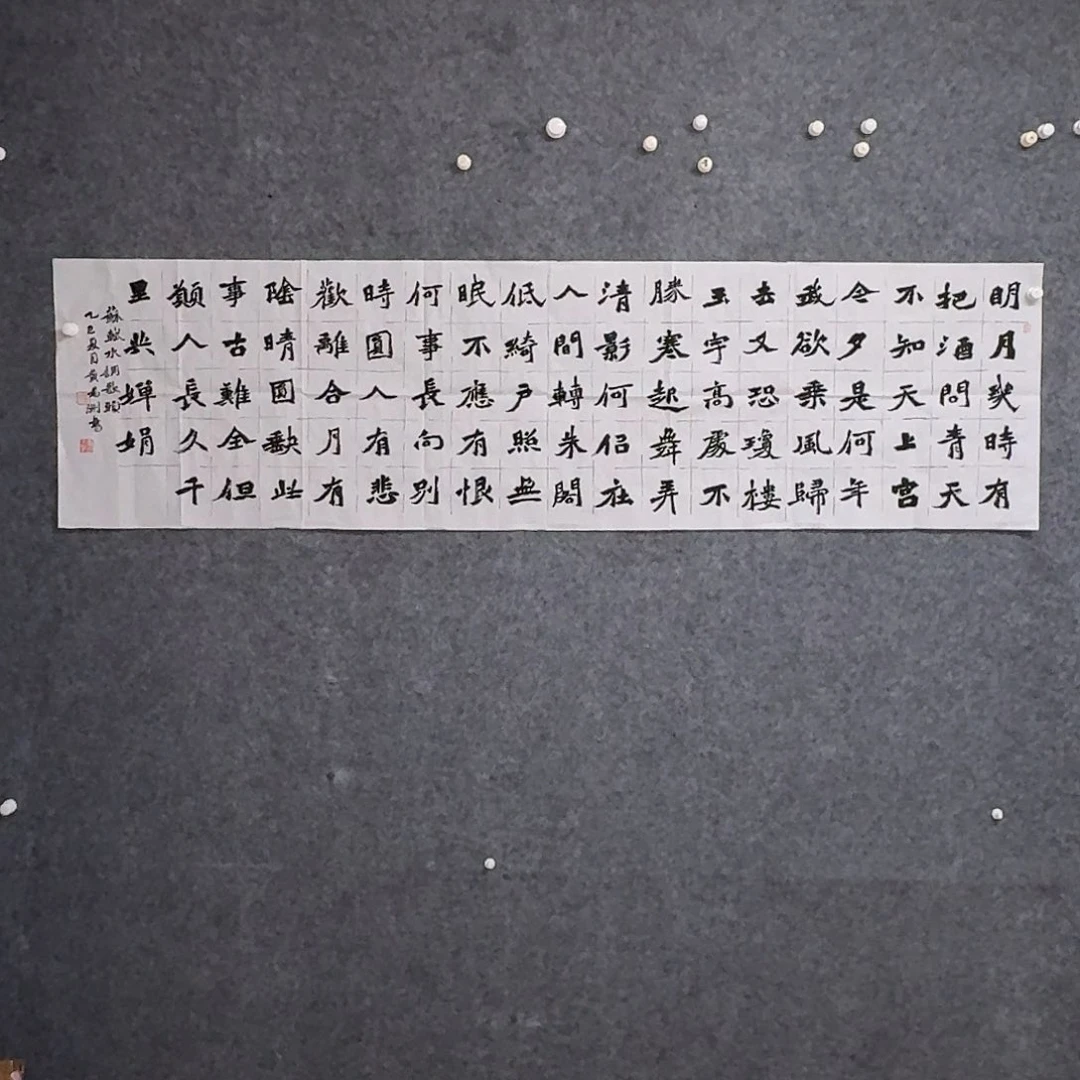 明月幾時有
把酒問青天
不知天上宫
今夕是何年
我欲乗風歸
去又恐瓊樓
玉宇高處不
勝寒起舞弄
清影何佀在
人間轉朱閣
低綺户照無
眠不應有恨
何事長向别
時圓人有悲
歡離合月有
陰晴圓缺此
事古難全但
願人長久千
里共嬋娟
蘇軾水調歌頭
乙巳夏月黄洲書